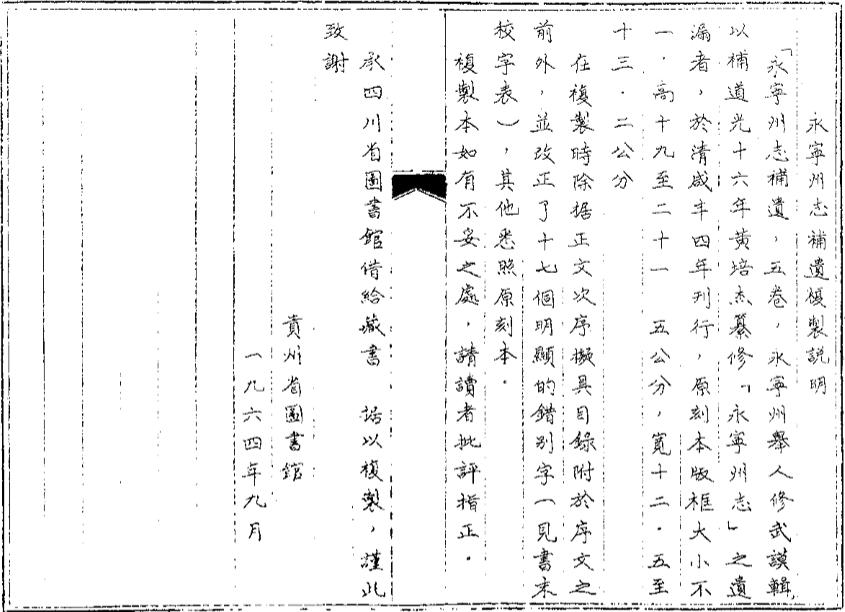 永寧州志補遺複製説明
「永寧州志補遺，五卷，永寧州舉人修武謨輯
以補道光十六年黄培杰纂修「永寧州志」之遺
漏者，於清咸丰四年刊行，原刻本版框大小不
一．高十九至二十一 五公分，寬十二．五至
十三．二公分
在複製時除据正文次序擬具目錄附於序文之
前外，並改正了十七個明顯的錯别字（見書末
校字表），其他悉照原刻本．
複製本如有不妥之處，請讀者批評指正．
承四川省圖書館借給藏書 据以複製，謹此
致謝
貴州省圖書館
一九六四年九月